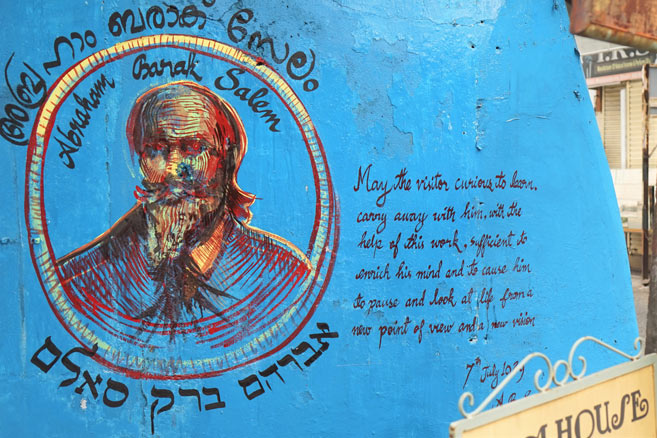 അബ്രഹാം ബരാക് സേലം
Abraham Barak Salem
אברהם ברק סאלם
May the visitor curious to learn,
carry away with him, with the
help of this work, sufficient to
enrich his mind and to cause him
to pause and look at life from a
new point of view and a new vision
7th July 1929
HOUSE